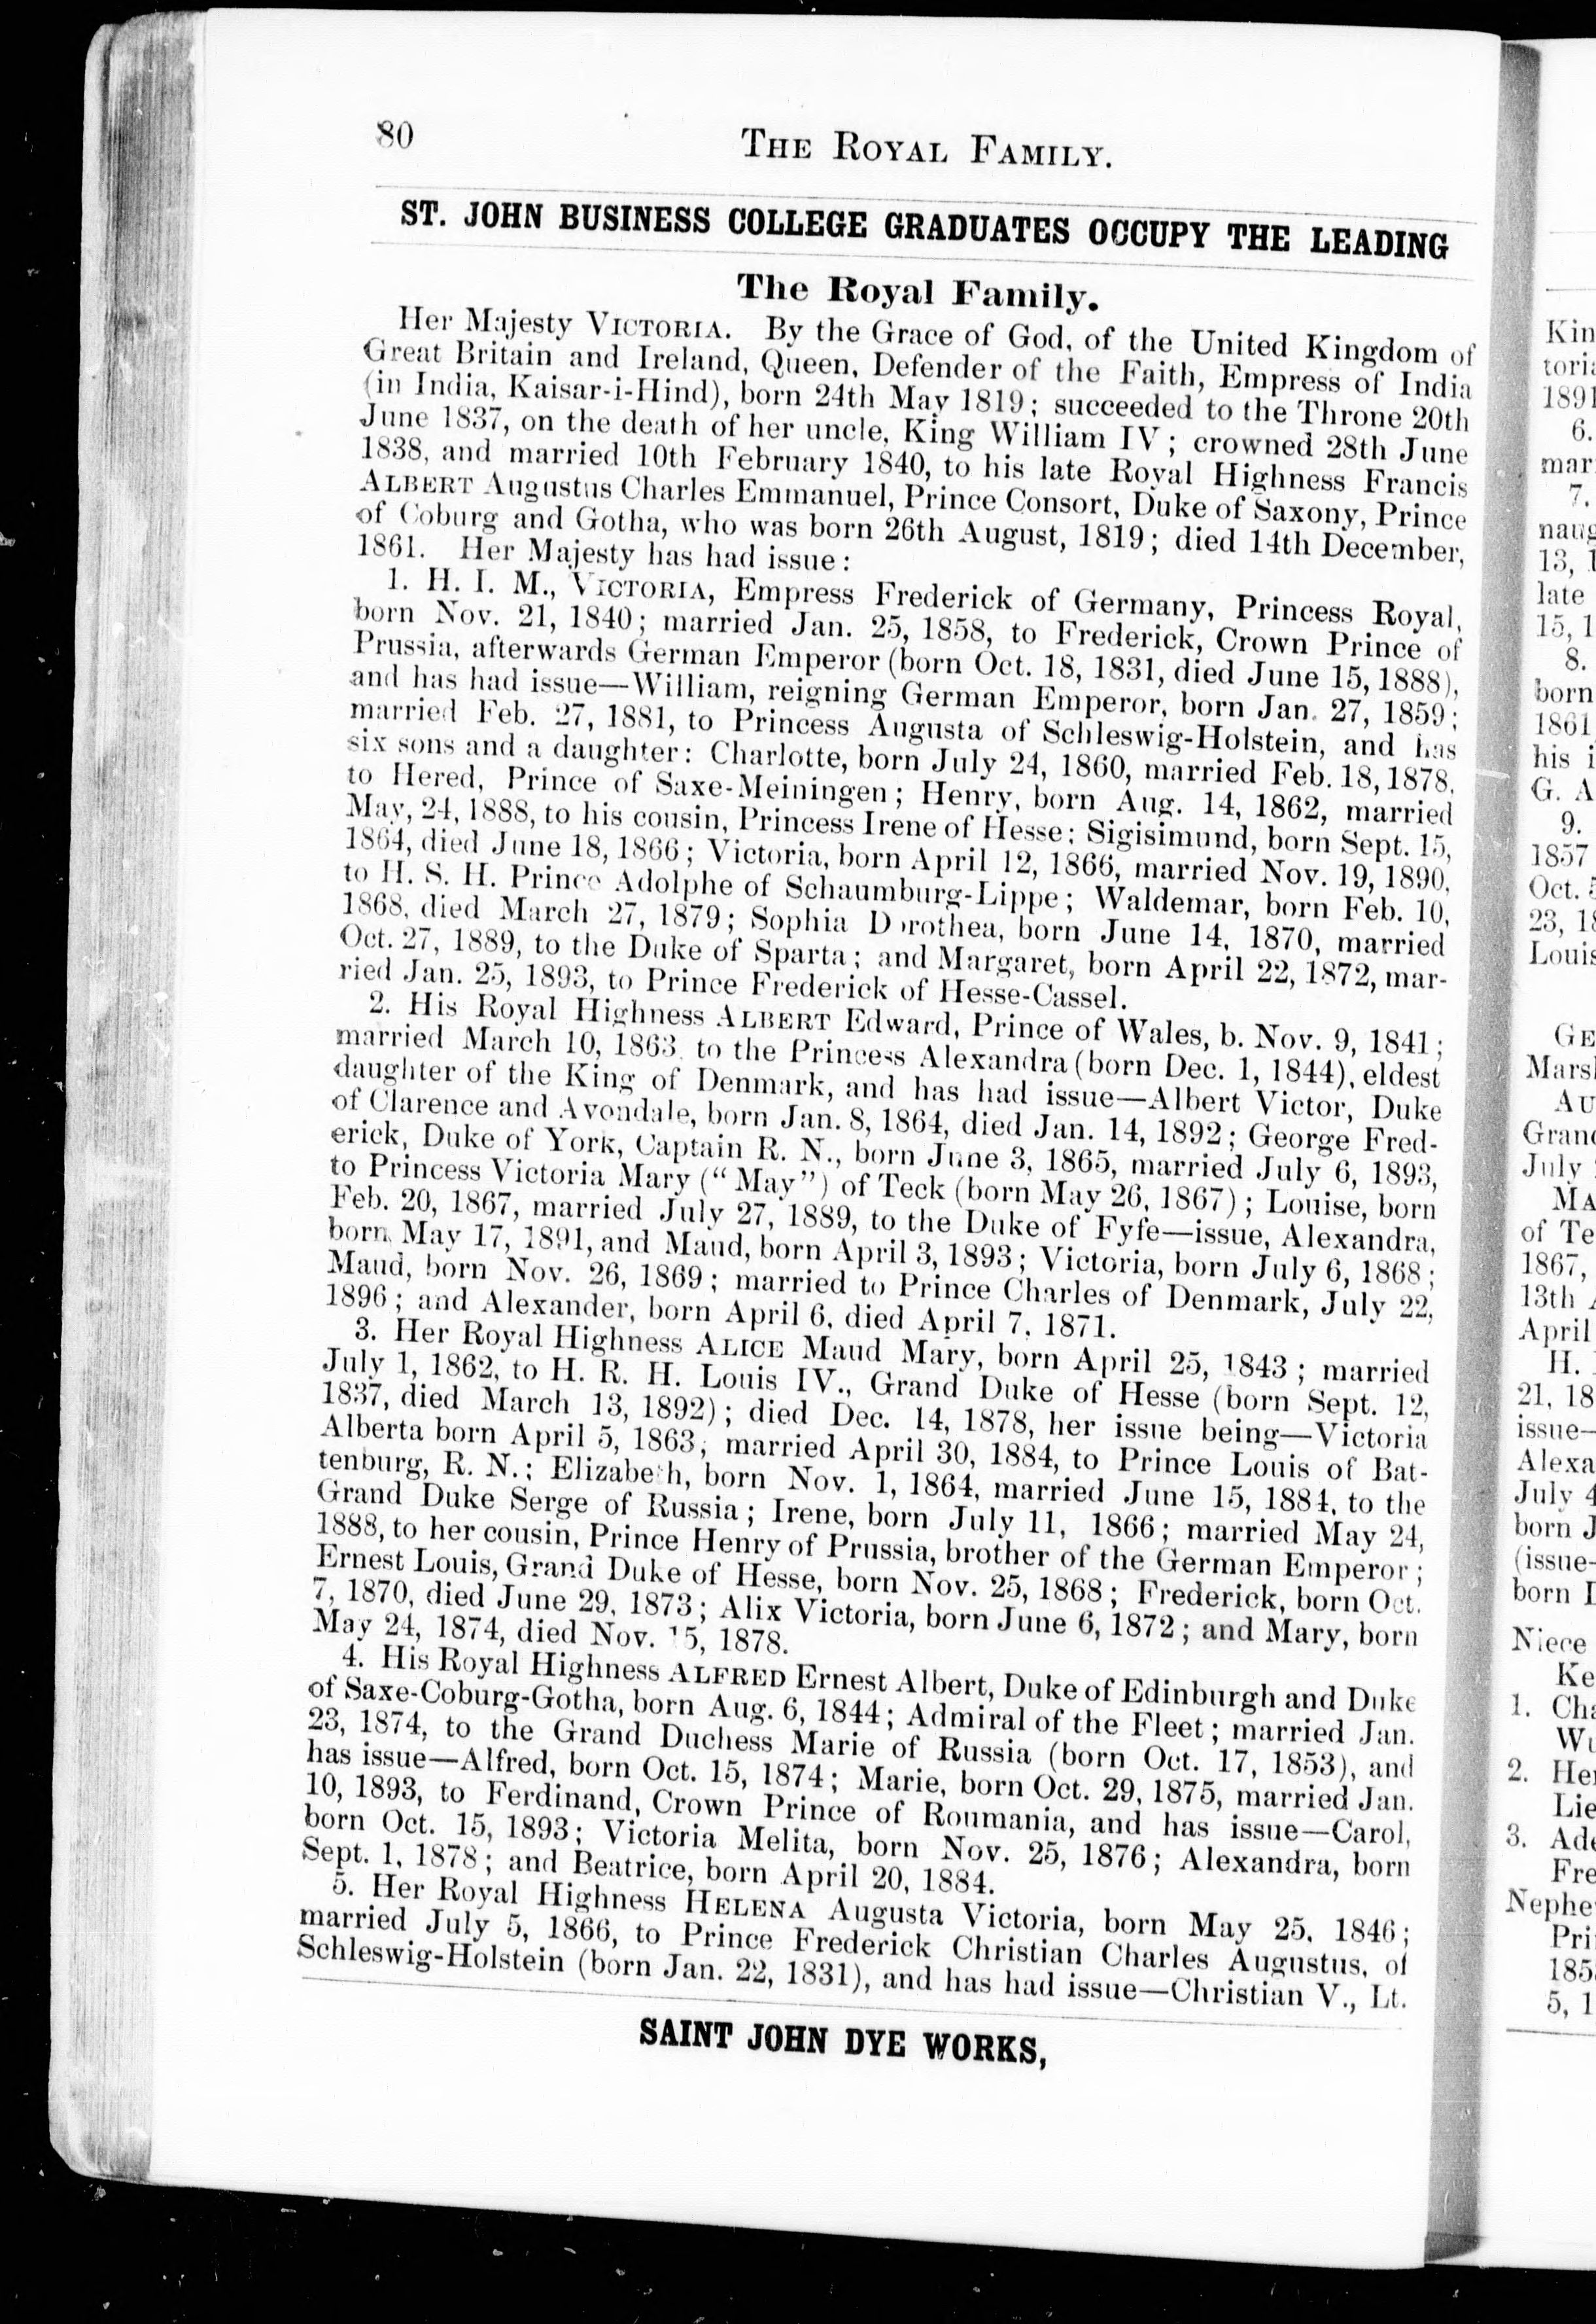 80 THE ROYAL FAMILY.
ST. JOHN BUSINESS COLLEGE GRADUATES OCCUPY THE LEADING
The Royal Family.
Her Majesty VICTORIA. By the Grace of God, of the United Kingdom of
Great Britain and Ireland, Queen, Defender of the Faith, Empress of India
(in India, Kaisar-i-Hind), born 24th May 1819; succeeded to the Throne 20th
June 1837, on the death of her uncle, King William IV; crowned 28th June
1838, and married 10th February 1840, to his late Royal Highness Francis
ALBERT Augustus Charles Emmanuel, Prince Consort, Duke of Saxony, Prince
of Coburg and Gotha, who was born 26th August, 1819; died 14th December,
1861. Her Majesty has had issue:
1. H. I. M., VICTORIA, Empress Frederick of Germany, Princess Royal,
born Nov. 21, 1840; married Jan. 25, 1858, to Frederick, Crown Prince of
Prussia, afterwards German Emperor (born Oct. 18, 1831, died June 15, 1888),
and has had issue—William, reigning German Emperor, born Jan. 27, 1859;
married Feb. 27, 1881, to Princess Augusta of Schleswig-Holstein, and has
six sons and a daughter: Charlotte, born July 24, 1860, married Feb. 18, 1878,
to Hered, Prince of Saxe-Meiningen; Henry, born Aug. 14, 1862, married
May, 24, 1888, to his cousin, Princess Irene of Hesse; Sigisimund, born Sept. 15,
1864, died June 18, 1866; Victoria, born April 12, 1866, married Nov. 19, 1890,
to H. S. H. Prince Adolphe of Schaumburg-Lippe; Waldemar, born Feb. 10,
1868, died March 27, 1879; Sophia Dorothea, born June 14, 1870, married
Oct. 27, 1889, to the Duke of Sparta; and Margaret, born April 22, 1872, mar-
ried Jan. 25, 1893, to Prince Frederick of Hesse-Cassel.
2. His Royal Highness ALBERT Edward, Prince of Wales, b. Nov. 9, 1841;
married March 10, 1863, to the Princess Alexandra (born Dec. 1, 1844), eldest
daughter of the King of Denmark, and has had issue—Albert Victor, Duke
of Clarence and Avondale, born Jan. 8, 1864, died Jan. 14, 1892; George Fred-
erick, Duke of York, Captain R. N., born June 3, 1865, married July 6, 1893,
to Princess Victoria Mary ("May") of Teck (born May 26, 1867); Louise, born
Feb. 20, 1867, married July 27, 1889, to the Duke of Fyfe—issue, Alexandra,
born, May 17, 1891, and Maud, born April 3, 1893; Victoria, born July 6, 1868;
Maud, born Nov. 26, 1869; married to Prince Charles of Denmark, July 22,
1896; and Alexander, born April 6, died April 7, 1871.
3. Her Royal Highness ALICE Maud Mary, born April 25, 1843; married
July 1, 1862, to H. R. H. Louis IV., Grand Duke of Hesse (born Sept. 12,
1837, died March 13, 1892); died Dec. 14, 1878, her issue being—Victoria
Alberta born April 5, 1863; married April 30, 1884, to Prince Louis of Bat-
tenburg, R. N.; Elizabeth, born Nov. 1, 1864, married June 15, 1884, to the
Grand Duke Serge of Russia; Irene, born July 11, 1866; married May 24,
1888, to her cousin, Prince Henry of Prussia, brother of the German Emperor;
Ernest Louis, Grand Duke of Hesse, born Nov. 25, 1868; Frederick, born Oct.
7, 1870, died June 29, 1873; Alix Victoria, born June 6, 1872; and Mary, born
May 24, 1874, died Nov. 15, 1878.
4. His Royal Highness ALFRED Ernest Albert, Duke of Edinburgh and Duke
of Saxe-Coburg-Gotha, born Aug. 6, 1844; Admiral of the Fleet; married Jan.
23, 1874, to the Grand Duchess Marie of Russia (born Oct. 17, 1853), and
has issue—Alfred, born Oct. 15, 1874; Marie, born Oct. 29, 1875, married Jan.
10, 1893, to Ferdinand, Crown Prince of Roumania, and has issue—Carol,
born Oct. 15, 1893; Victoria Melita, born Nov. 25, 1876; Alexandra, born
Sept. 1, 1878; and Beatrice, born April 20, 1884.
5. Her Royal Highness HELENA Augusta Victoria, born May 25, 1846;
married July 5, 1866, to Prince Frederick Christian Charles Augustus, of
Schleswig-Holstein (born Jan. 22, 1831), and has had issue—Christian V., Lt.
SAINT JOHN DYE WORKS,